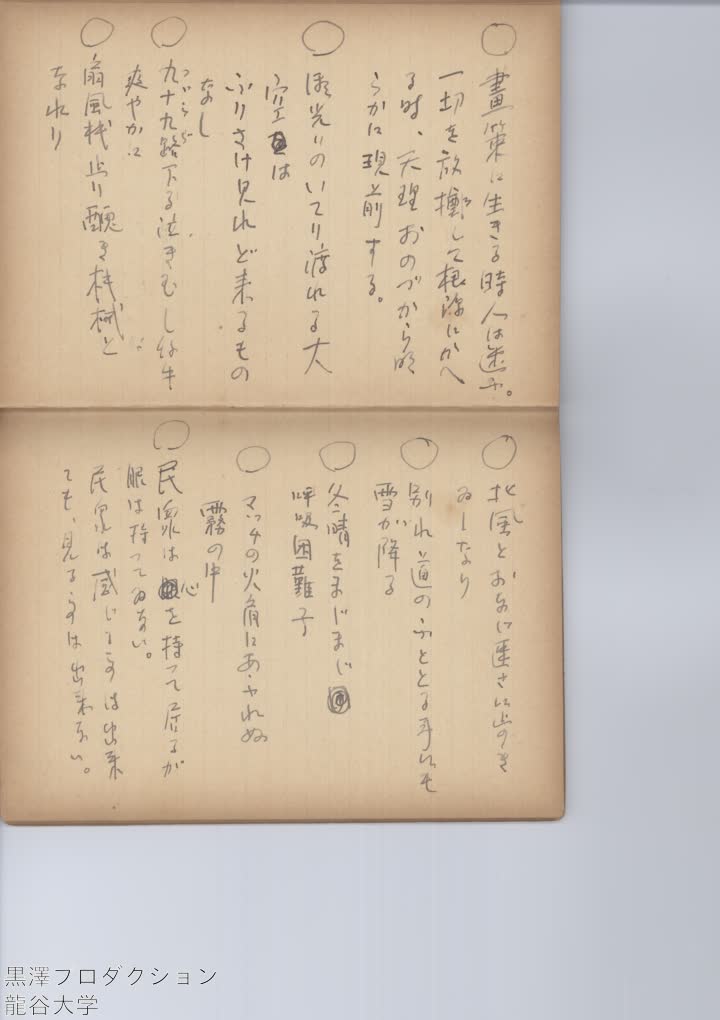 ○
畫策に生きる時人は迷ふ。
一切を放擲して根源にかへ
る時、天理おのづから明
らかに現前する。
○
陽光のいてり渡れる大
空は
ふりさけ見れど来るもの
なし
○
九十九路下る泣きむし仔牛
つづらぢ
爽やかに
○
扇風機止り醜き機械と
なれり
○
北風とおなじ速さに歩き
ゐしなり
○
別れ道のふととる手にも
雪が降る
○
冬晴をまじまじ
呼吸困難子
○
マッチの火眉にあふれぬ
霧の中
○
民衆は心を持って居るが
眼は持ってゐない。
民衆は感じる事は出来
ても、見る事は出来ない。
黒澤プロダクション
龍谷大学